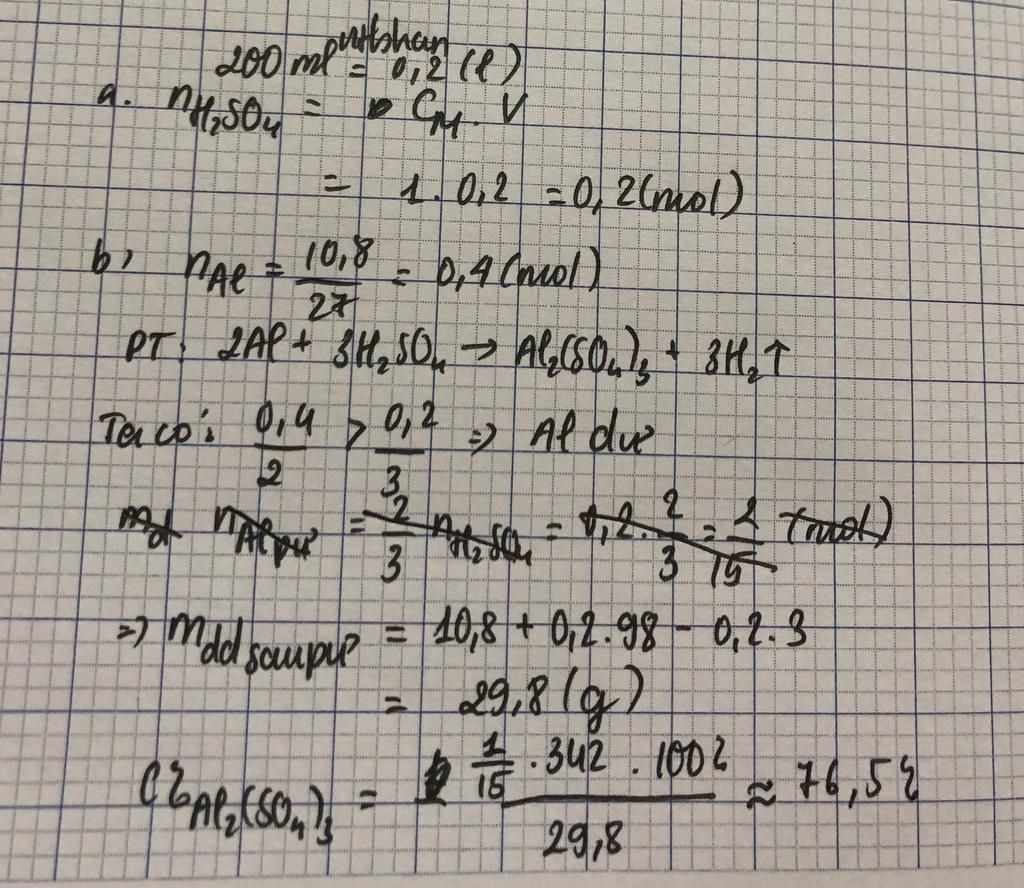 200 ml = 0,2 (l)
a. nH₂SO₄ = CM . V
= 1 . 0,2 = 0,2 (mol)
b, nAl = 10,8/27 = 0,4 (mol)
PT: 2Al + 3H₂SO₄ → Al₂(SO₄)₃ + 3H₂↑
Ta có: 0,4/2 > 0,2/3 => Al dư
nAl pư = 2/3 nH₂SO₄ = 0,2 . 2/3 = 2/15 (mol)
=> mdd sau pư = 10,8 + 0,2.98 - 0,2.3
= 29,8 (g)
C% Al₂(SO₄)₃ = 1/15 . 342 . 100% / 29,8 ≈ 76,5%